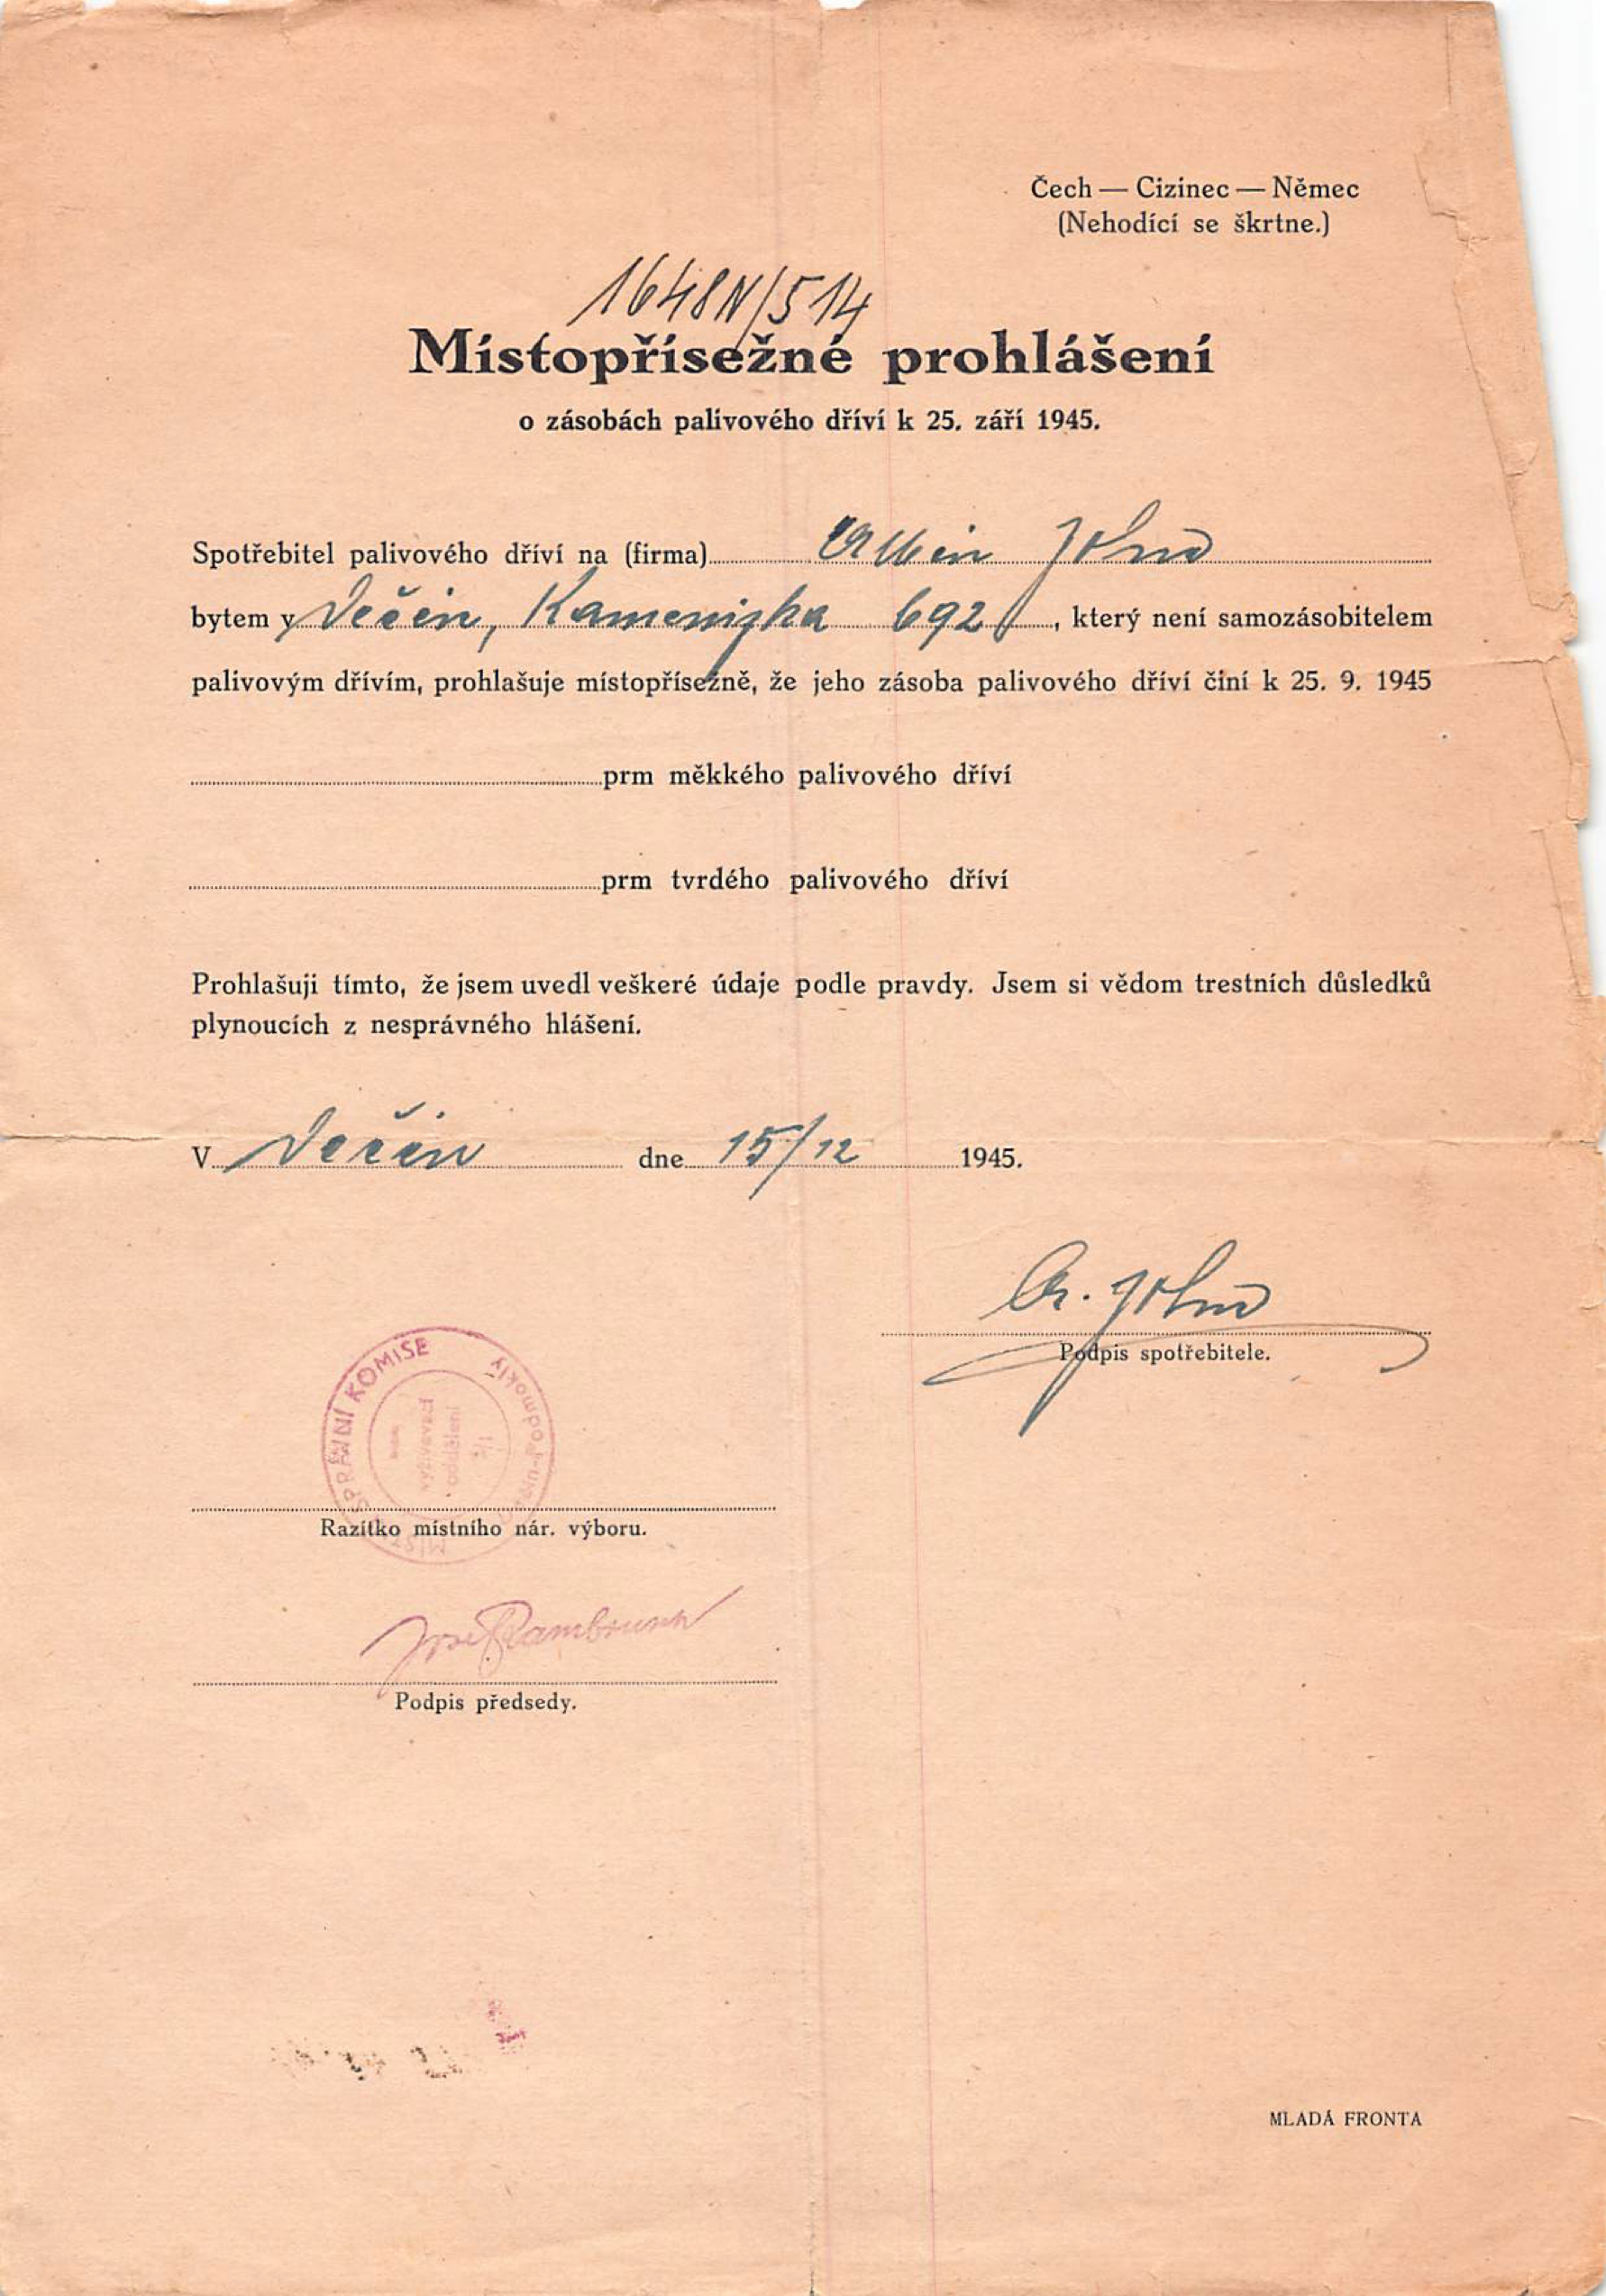 Čech — Cizinec — Němec
(Nehodící se škrtne.)
1648N/514
Místopřísežné prohlášení
o zásobách palivového dříví k 25. září 1945.
Spotřebitel palivového dříví na (firma) Albin John
bytem v Dečín, Kamenizka 692, který není samozásobitelem
palivovým dřívím, prohlašuje místopřísežně, že jeho zásoba palivového dříví činí k 25. 9. 1945
prm měkkého palivového dříví
prm tvrdého palivového dříví
Prohlašuji tímto, že jsem uvedl veškeré údaje podle pravdy. Jsem si vědom trestních důsledků
plynoucích z nesprávného hlášení.
V Dečín dne 15/12 1945.
A. John
Podpis spotřebitele.
SPRÁVNÍ KOMISE
Podmokly
vyživovací
oddělení
Razítko místního nár. výboru.
Podpis předsedy.
MLADÁ FRONTA